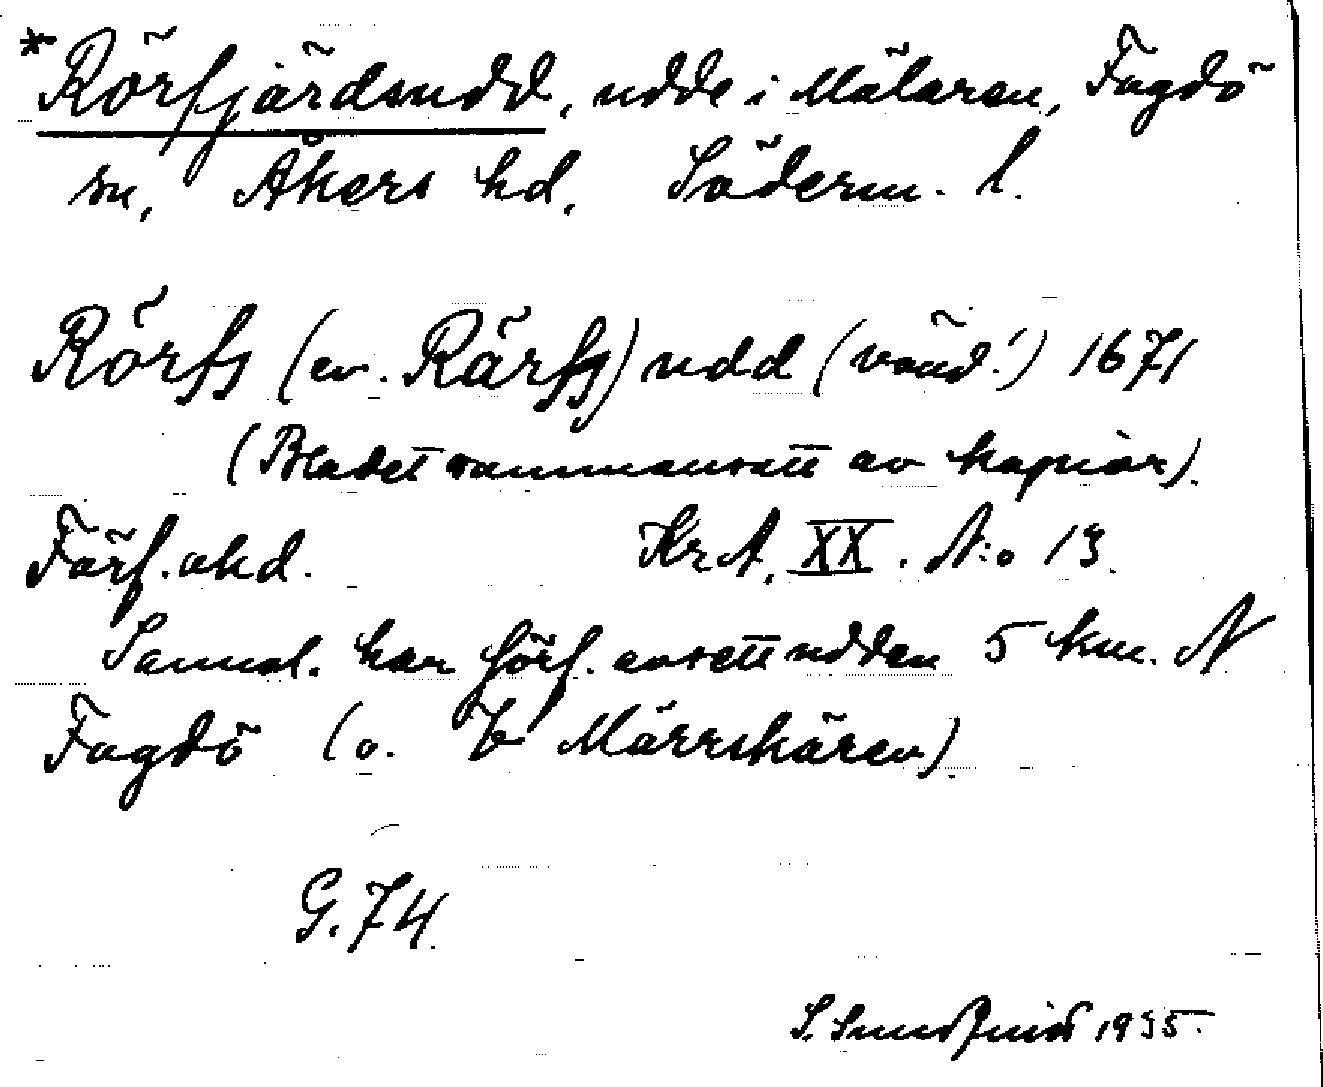 *Rörfjärdsudd, udde i Mälaren, Fogdö
sn, Åkers hd, Söderm. l.
Rörfs (ev. Rärfs) udd (vänd!) 1671
(Bladet sammansatt av kopior).
Förf. okd. KrA, XX. N:o 13.
Sannol. har förf. avsett udden 5 km. N
Fogdö (o. V Märrskären)
G. 74.
S. Sundquist 1935.